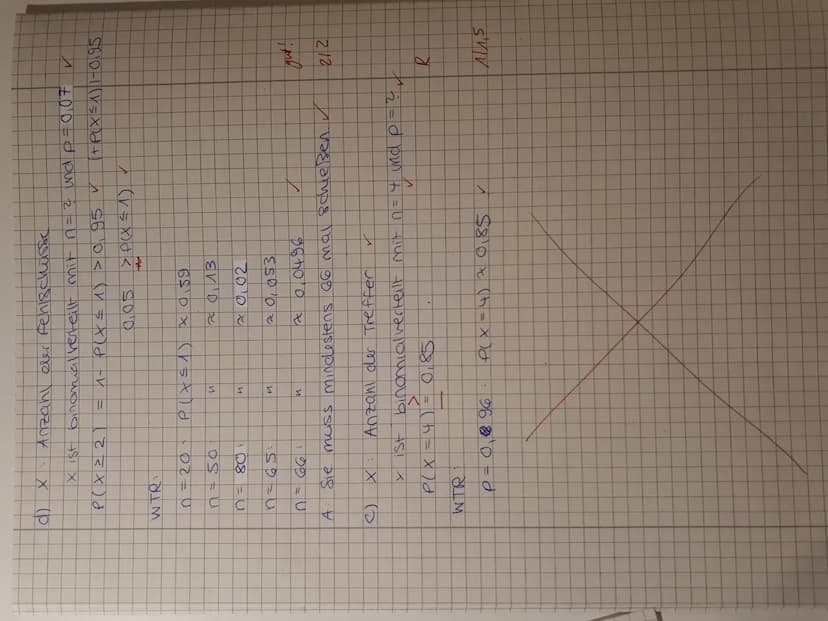 d) X : Anzahl der Fehlschüsse
X ist binomialverteilt mit n = ? und p = 0,07 ✓
P(X ≥ 2) = 1 - P(X ≤ 1) > 0,95 ✓ |+P(X≤1)|-0,95
0,05 > P(X ≤ 1) ✓
WTR:
n = 20 : P(X ≤ 1) ≈ 0,59
n = 50 " ≈ 0,13
n = 80 : " ≈ 0,02
n = 65 : " ≈ 0,053
n = 66 : " ≈ 0,0496 ✓ gut!
A: Sie muss mindestens 66 mal schießen. ✓ 2/2
c) X : Anzahl der Treffer ✓
X ist binomialverteilt mit n = 4 und p = ? ✓
P(X = 4) ≥ 0,85 R
WTR:
p = 0,96 : P(X = 4) ≈ 0,85 ✓ 1/1,5